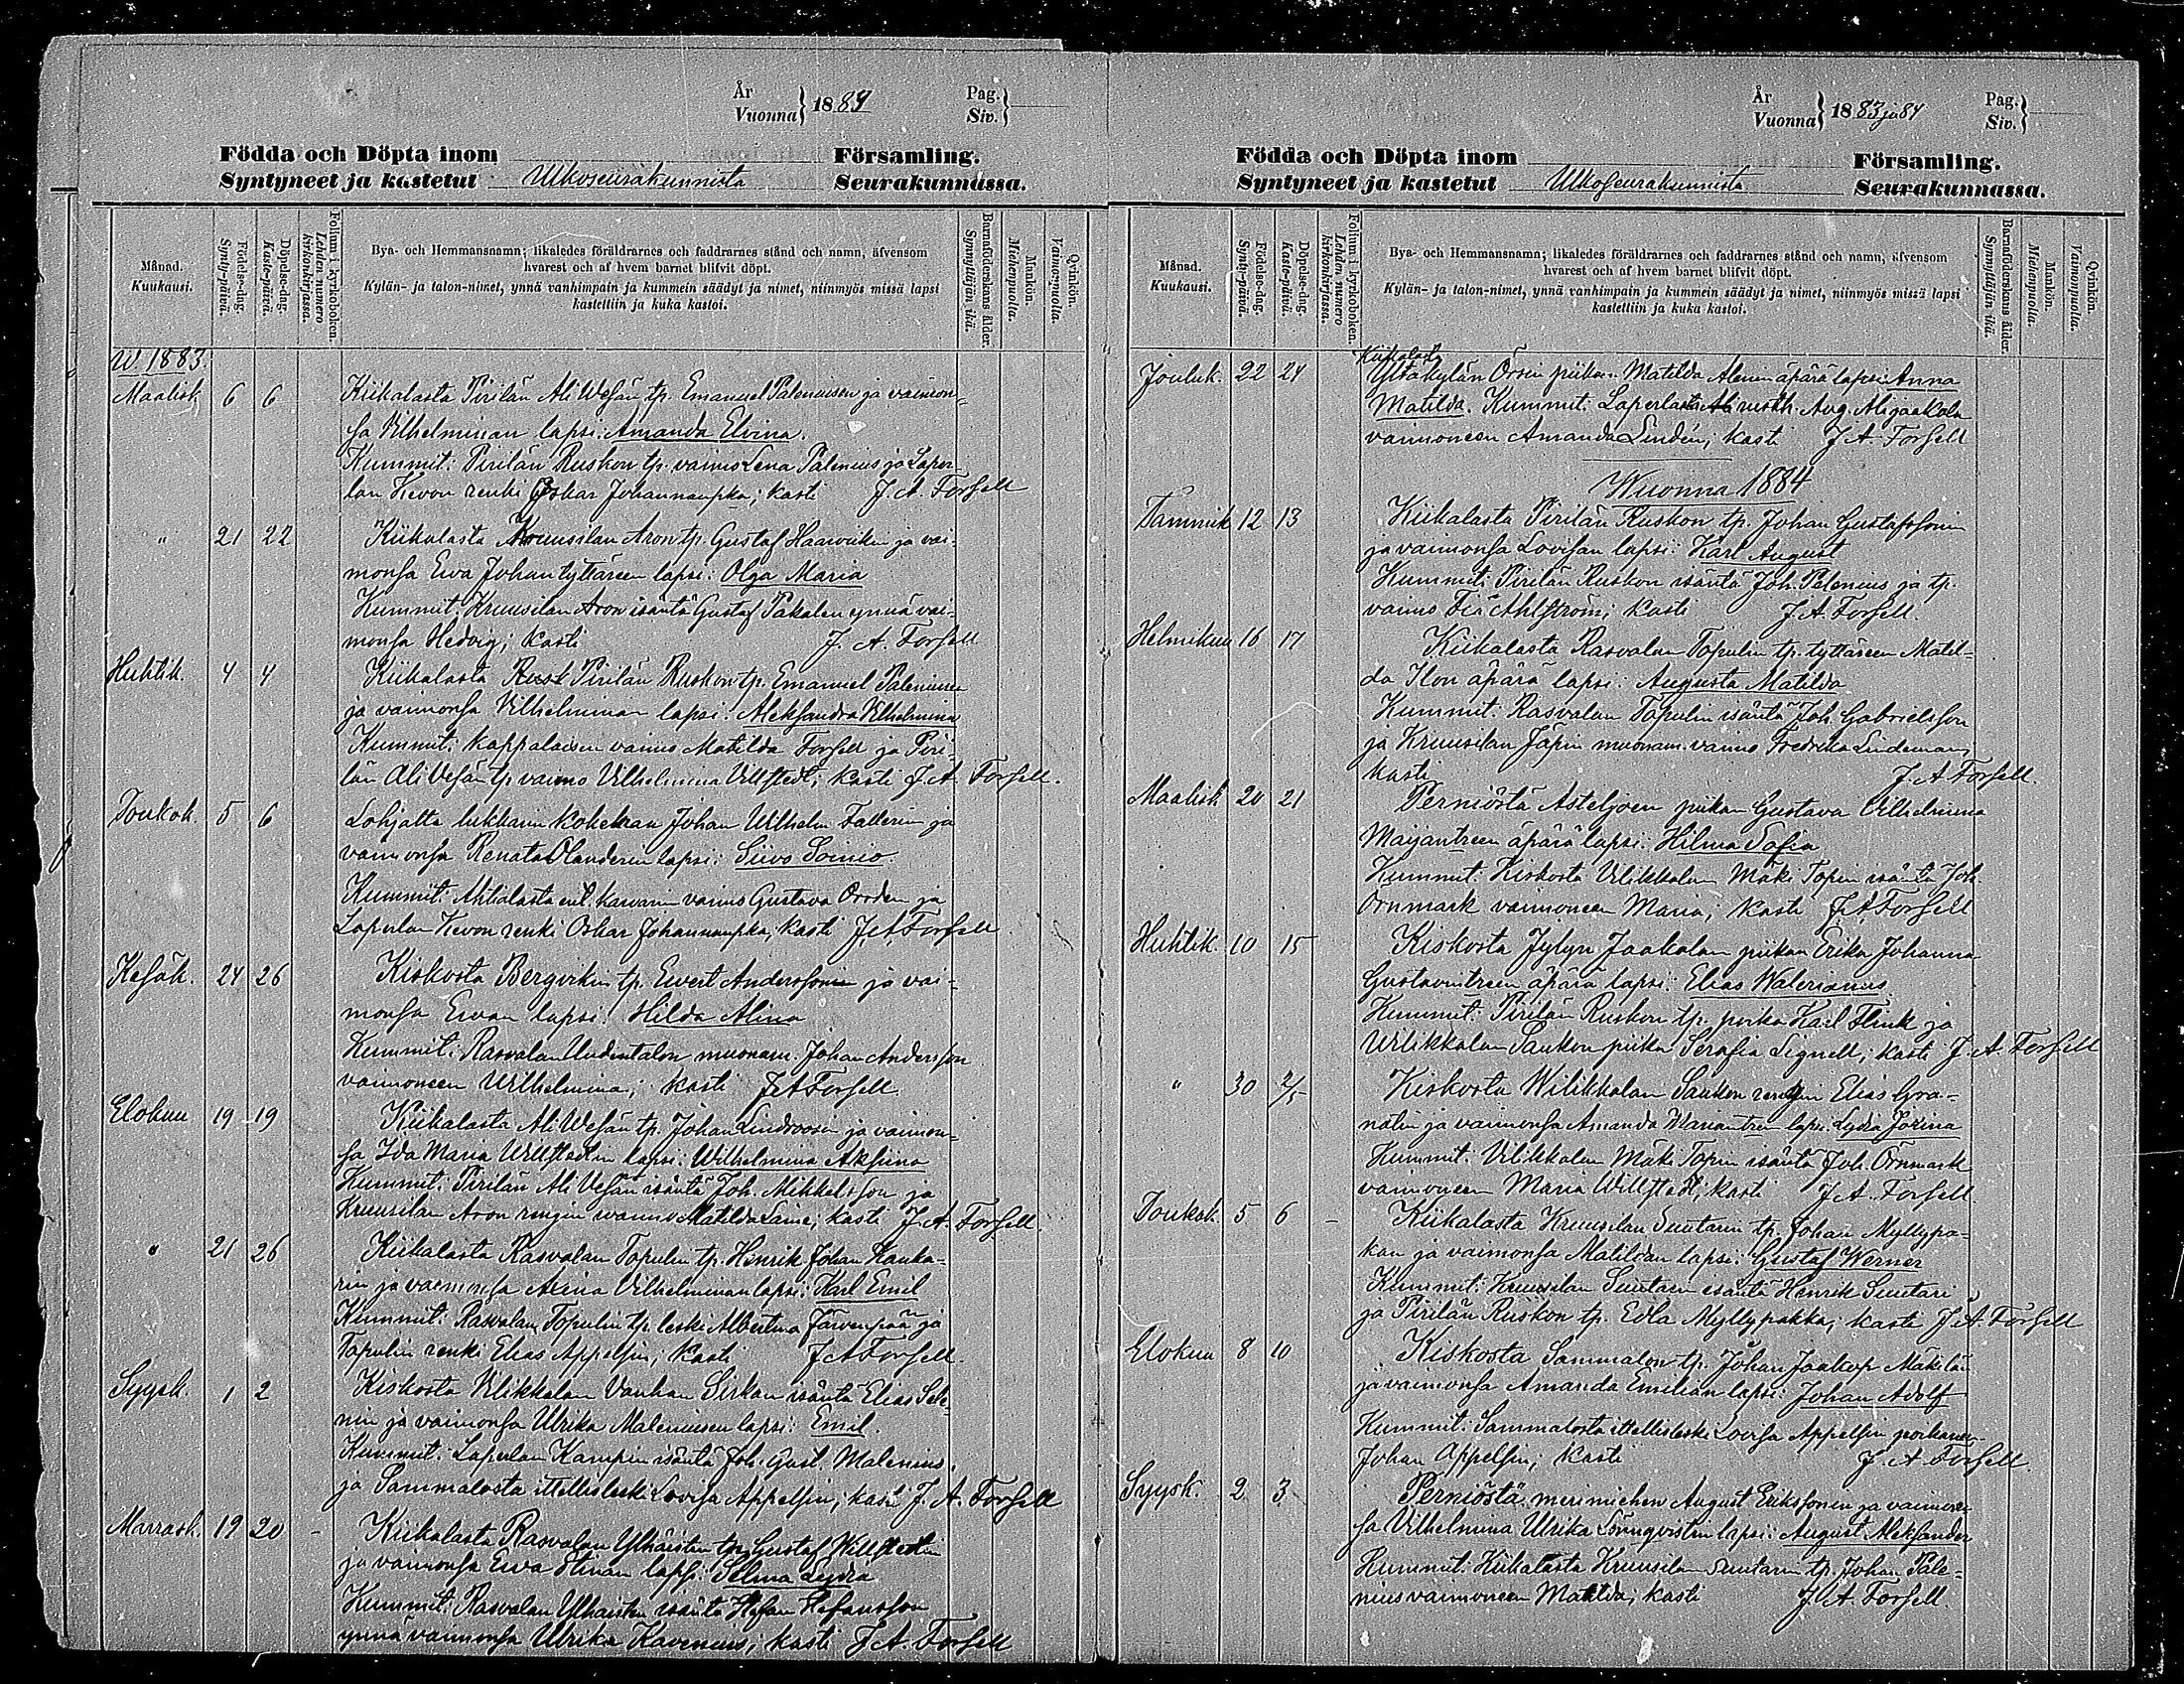 År
Vuonna} 1884 Pag.
Siv.}
Födda och Döpta inom Församling.
Syntyneet ja kastetut Ulkoseurakunnista Seurakunnassa.
Månad.
Kuukausi.
Födelse-dag.
Synty-päivä.
Döpelse-dag.
Kaste-päivä.
Folium i kyrkoboken.
Lehden numero
kirkonkirjassa.
Bya- och Hemmansnamn; likaledes föräldrarnes och faddrarnes stånd och namn, äfvensom
hvarest och af hvem barnet blifvit döpt.
Kylän- ja talon-nimet, ynnä vanhimpain ja kummein säädyt ja nimet, niinmyös missä lapsi
kastettiin ja kuka kastoi.
Barnaföderskans ålder.
Synnyttäjän ikä.
Mankön.
Miehenpuolia.
Qvinkön.
Vaimonpuolia.
W. 1883.
Maalisk. 6 6 Kiikalasta Pirilän Ali Wesän tp. Emanuel Paleniusen ja vaimon-
sa Vilhelminan lapsi: Amanda Elvina.
Kummit: Pirilän Ruskon tp. vaimo Lena Palenius ja Laper-
lan Kevon renki Oskar Johannanpka; kasti J. A. Forsell
" 21 22 Kiikalasta Kruusilan Aron tp. Gustaf Haarviken ja vai-
monsa Ewa Johantyttären lapsi: Olga Maria
Kummit: Kruusilan Aron isäntä Gustaf Pakalen ynnä vai-
monsa Hedvig; kasti J. A. Forsell
Huhtik. 4 4 Kiikalasta Pirilän Ruskon tp. Emanuel Paleniusen
ja vaimonsa Vilhelminan lapsi: Aleksandra Vilhelmina
Kummit: kappalaisen vaimo Matilda Forsell ja Piri-
län Ali Vesän tp. vaimo Vilhelmina Villstedt; kasti J. A. Forsell.
Toukok. 5 6 Lohjalta lukkarin kokelaan Johan Wilhelm Fallerin ja
vaimonsa Renata Olanderin lapsi: Siivo Soinio.
Kummit: vaimo Gustava Orrden ja
Laperlan Kevon renki Oskar Johannanpka; kasti J. A. Forsell
Kesäk. 24 26 Kiskosta Bergvikin tp. Evert Anderssonin ja vai-
monsa Ewan lapsi: Hilda Alina
Kummit: Rasvalan Uudentalon muonam. Johan Andersson
vaimoneen Wilhelmina; kasti J. A. Forsell.
Elokuu 19 19 Kiikalasta Ali Wesän tp. Johan Lindroosin ja vaimon-
sa Ida Maria Willstedtin lapsi: Wilhelmina Aksiina
Kummit: Pirilän Ali Vesän isäntä Joh. Mikkelsson ja
Kruusilan Aron rengin vaimo Matilda Laine; kasti J. A. Forsell.
" 21 26 Kiikalasta Rasvalan Topulin tp. Henrik Johan Kauka-
rin ja vaimonsa Vilhelminan lapsi: Karl Emil
Kummit: Rasvalan Topulin tp. leski Albertina Järvenpää ja
Topulin renki Elias Appelsin; kasti J. A. Forsell.
Syysk. 1 2 Kiskosta Vilikkalan Vanhan Sirkan isäntä Elias Sele-
nin ja vaimonsa Ulrika Maleniusen lapsi: Emil.
Kummit: Laperlan Kampin isäntä Joh. Gust. Malenius.
ja Sammalosta ittellisleski Lovisa Appelsin; kasti J. A. Forsell
Marrask. 19 20 - Kiikalasta Rasvalan Ylhäisten tp. Gustaf Willstedtin
ja vaimonsa Ewa Stinan lapsi: Selma Lydia
Kummit: Rasvalan Ylhäisten isäntä Stefan Stefansson
ynnä vaimonsa Ulrika Kavenius; kasti J. A. Forsell
År
Vuonna} 1883 ja 84 Pag.
Siv.}
Födda och Döpta inom Församling.
Syntyneet ja kastetut Ulkoseurakunnista Seurakunnassa.
Månad.
Kuukausi.
Födelse-dag.
Synty-päivä.
Döpelse-dag.
Kaste-päivä.
Folium i kyrkoboken.
Lehden numero
kirkonkirjassa.
Bya- och Hemmansnamn; likaledes föräldrarnes och faddrarnes stånd och namn, äfvensom
hvarest och af hvem barnet blifvit döpt.
Kylän- ja talon-nimet, ynnä vanhimpain ja kummein säädyt ja nimet, niinmyös missä lapsi
kastettiin ja kuka kastoi.
Barnaföderskans ålder.
Synnyttäjän ikä.
Mankön.
Miehenpuolia.
Qvinkön.
Vaimonpuolia.
Kiikalasta
Jouluk. 22 24 Yltäkylän Örsin piikan Matilda Alenin äpärä lapsi: Anna
Matilda. Kummit: Laperlasta Aug. Alijaakala
vaimoneen Amanda Lindén; kasti J. A. Forsell
Wuonna 1884
Tammik. 12 13 Kiikalasta Pirilän Ruskon tp. Johan Gustafssonin
ja vaimonsa Lovisan lapsi: Karl August
Kummit: Pirilän Ruskon isäntä Joh. Palenius ja tp.
vaimo Fia Ahlström; kasti J. A. Forsell.
Helmikuu 16 17 Kiikalasta Rasvalan Topulin tp. tyttären Matil-
da Ilon äpärä lapsi: Augusta Matilda
Kummit: Rasvalan Topulin isäntä Joh. Gabrielsson
ja Kruusilan Jäpin muonam. vaimo Fredrika Lindeman;
kasti J. A. Forsell.
Maalisk. 20 21 Perniöstä Asteljoen piikan Gustava Vilhelmina
Maijantreen äpärä lapsi: Hilma Sofia
Kummit: Kiskosta Vilikkalan Mäki Topin isäntä Joh.
Örnmark vaimoneen Maria; kasti J. A. Forsell
Huhtik. 10 15 Kiskosta Jylyn Jaakolan piikan Erika Johanna
Gustavintreen äpärä lapsi: Elias Walerianus
Kummit: Pirilän Ruskon tp. poika Karl Flink ja
Wilikkalan Saukon piika Serafia Lignell; kasti J. A. Forsell
" 30 2/5 Kiskosta Wilikkalan Saukon rengin Elias Gra-
natin ja vaimonsa Amanda Mariantreen lapsi: Lydia Josina
Kummit: Vilikkalan Mäki Topin isäntä Joh. Örnmark
vaimoneen Maria Willstedt; kasti J. A. Forsell.
Toukok. 5 6 - Kiikalasta Kruusilan Suutarin tp. Johan Myllypa-
kan ja vaimonsa Matildan lapsi: Gustaf Werner
Kummit: Kruusilan Suutarin isäntä Henrik Suutari
ja Pirilän Ruskon tp. Edla Myllypakka; kasti J. A. Forsell
Elokuu 8 10 Kiskosta Sammalon tp. Johan Jaakop Mäkilän
ja vaimonsa Amanda Emilian lapsi: Johan Adolf
Kummit: Sammalosta ittellisleski Lovisa Appelsin poikaneen
Johan Appelsin; kasti J. A. Forsell.
Syysk. 2 3 Perniöstä merimiehen August Erikssonin ja vaimon-
sa Vilhelmina Ulrika Lönnqvistin lapsi: August Aleksander
Kummit: Kiikalasta Kruusilan Suutarin tp. Johan Pale-
nius vaimoneen Matilda; kasti J. A. Forsell.